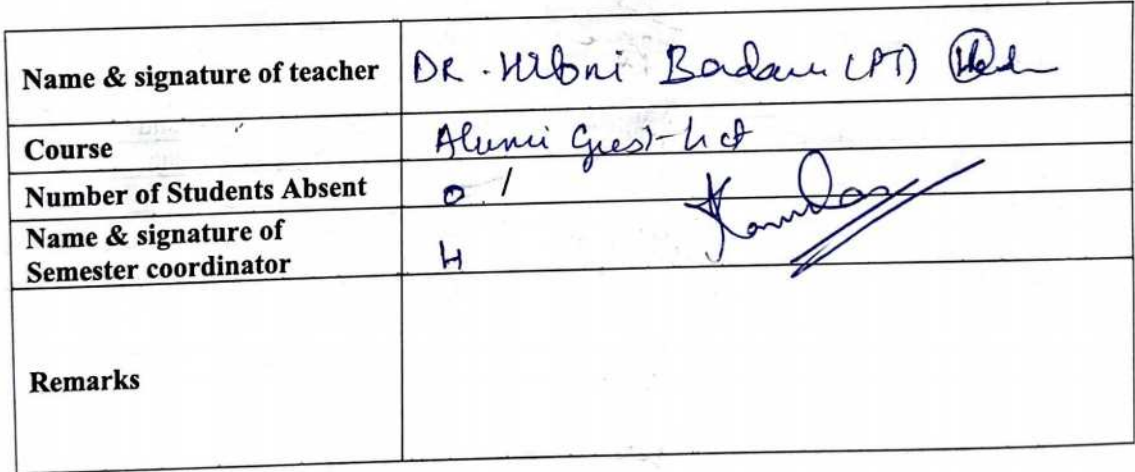 Name & signature of teacher DR. Badani (PT)
Course Alumni Guest-Lect
Number of Students Absent 01
Name & signature of
Semester coordinator
Remarks